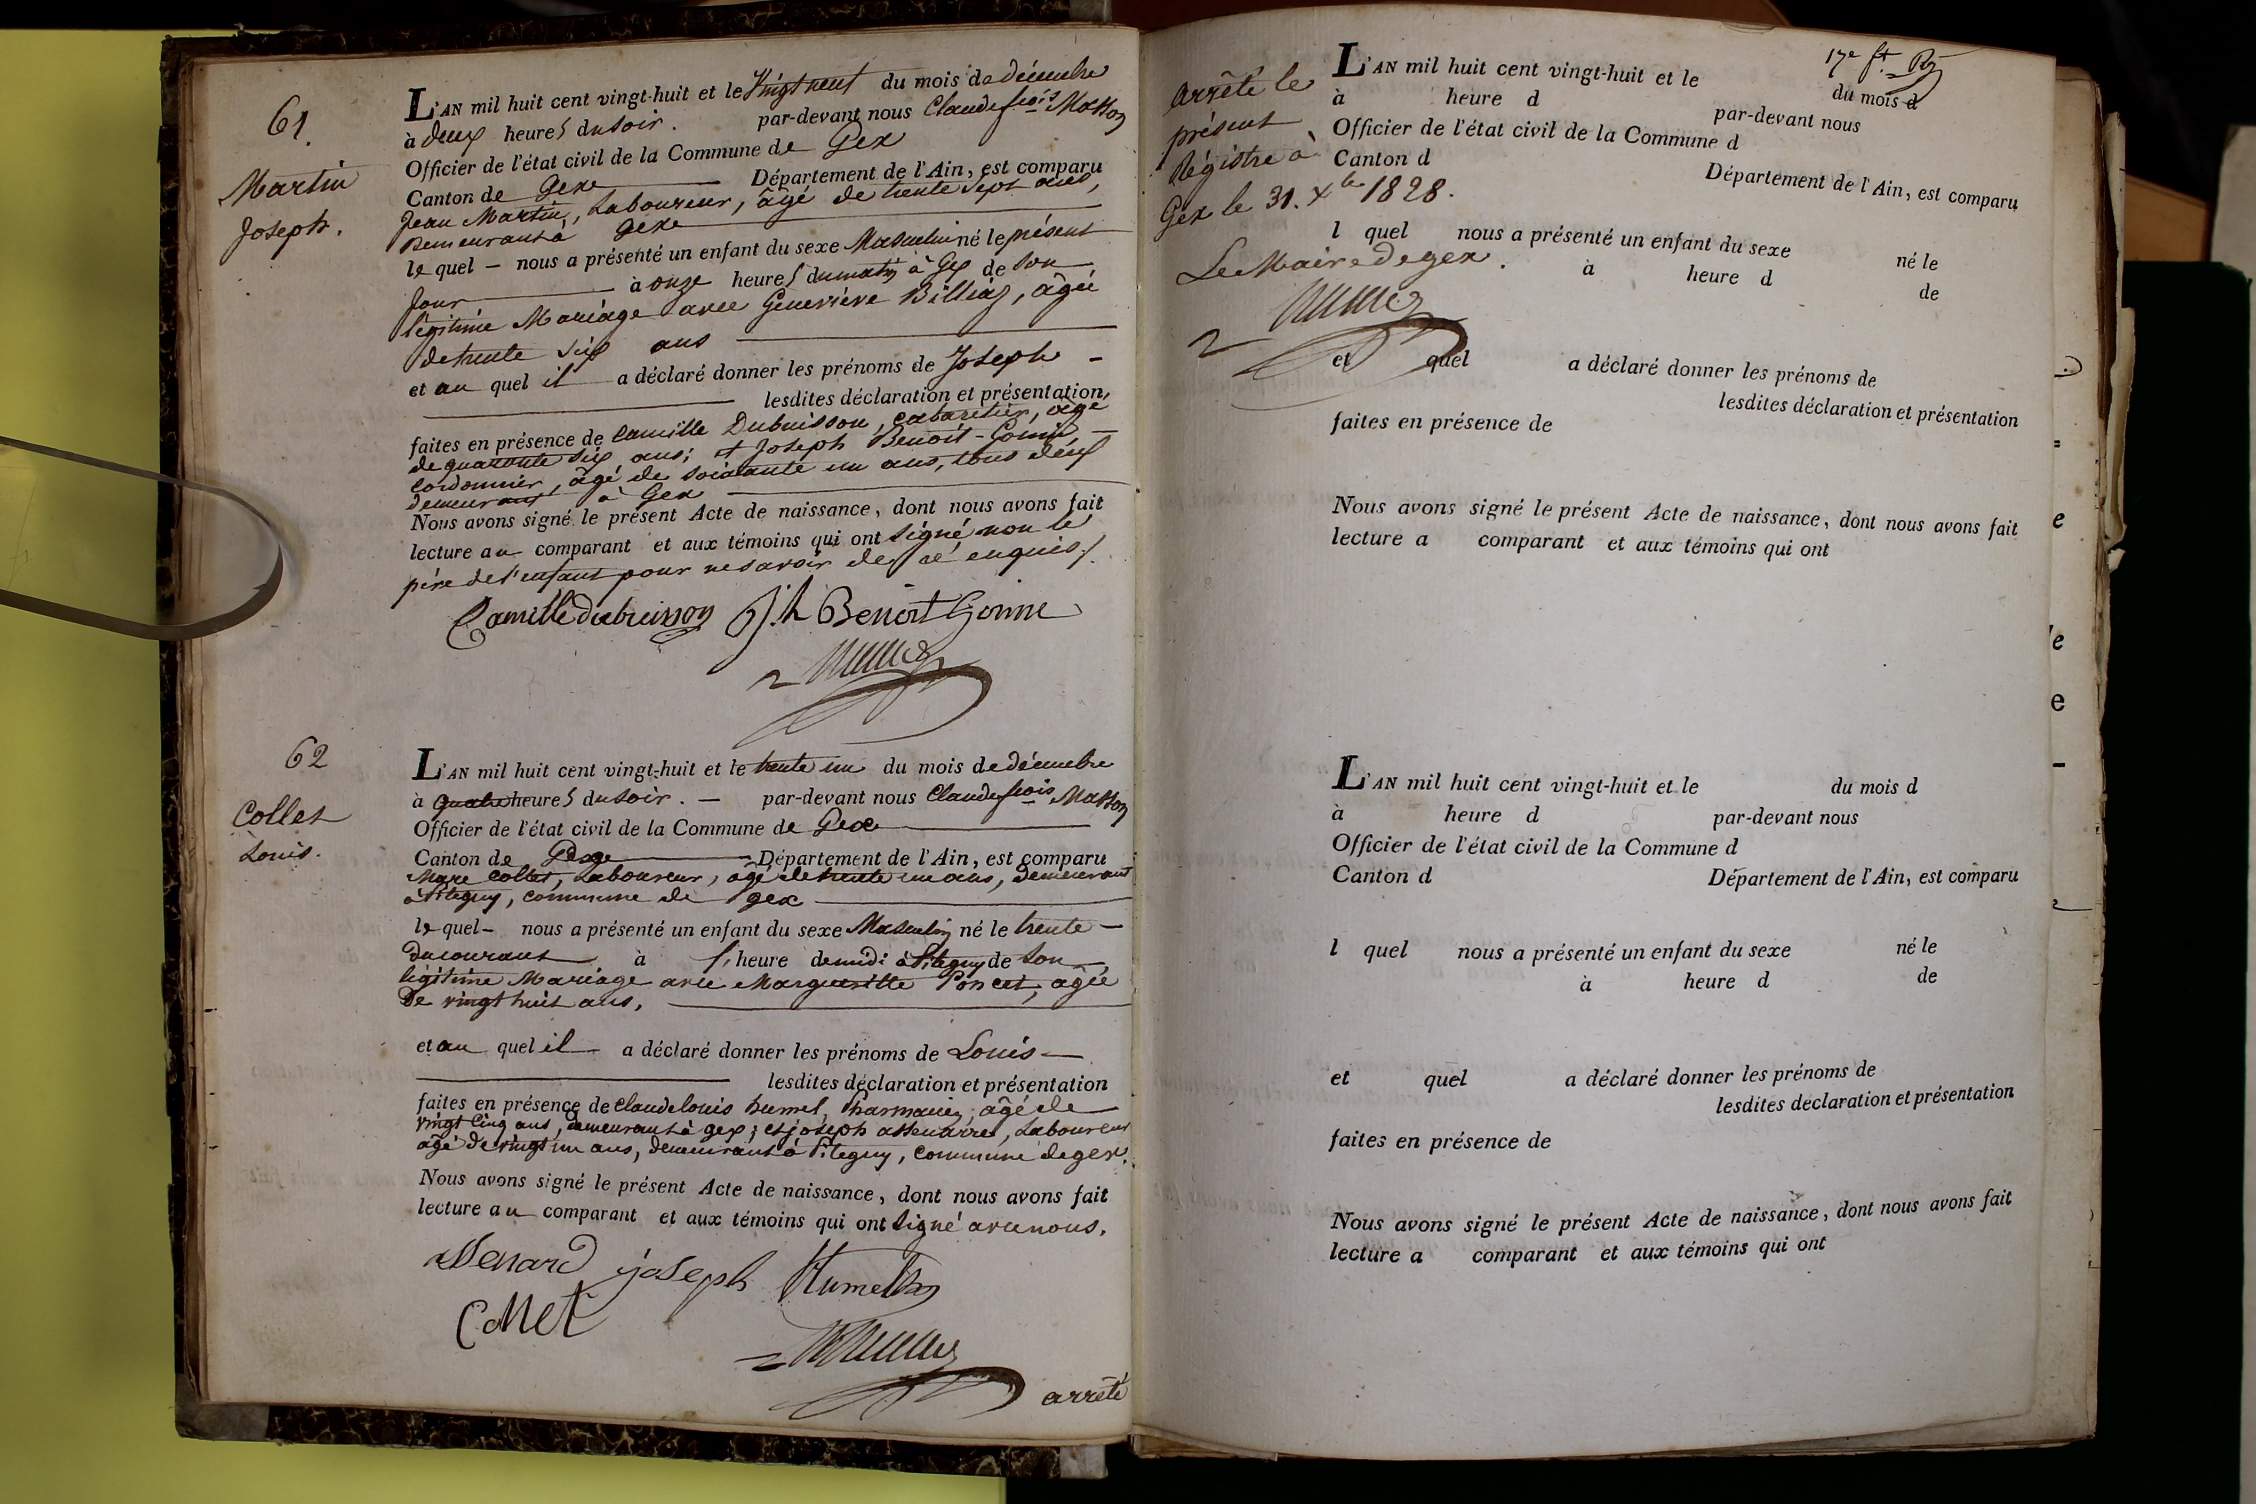 61.
Martin
Joseph.
L'AN mil huit cent vingt-huit et le Vingt neuf du mois de décembre
à deux heures du soir. par-devant nous Claude fcois Masson
Officier de l'état civil de la Commune de Gex
Canton de Gex Département de l'Ain, est comparu
Jean Martin, Laboureur, âgé de trente sept ans,
Demeurant à Gex
le quel — nous a présenté un enfant du sexe Masculin né le présent
Jour à onze heures du matin à Gex de son
légitime Mariage avec Geneviève Billiaz, âgée
de trente six ans
et au quel il a déclaré donner les prénoms de Joseph —
lesdites déclaration et présentation,
faites en présence de Camille Dubuisson, cabaretier, âgé
de quarante six ans; et Joseph Benoit-Gonin
cordonnier, âgé de soixante un ans, tous deux
demeurant à Gex
Nous avons signé le présent Acte de naissance, dont nous avons fait
lecture au comparant et aux témoins qui ont signé non le
père de l'enfant pour ne savoir de ce enquis ./.
Camille dubuisson Jh Benoit Gonin
62
Collet
Louis.
L'AN mil huit cent vingt-huit et le trente un du mois de décembre
à quatre heures du soir. — par-devant nous Claude fcois Masson
Officier de l'état civil de la Commune de Gex
Canton de Gex Département de l'Ain, est comparu
Marc Collet, Laboureur, âgé de trente un ans, demeurant
à Pitegny, commune de gex
le quel — nous a présenté un enfant du sexe Masculin né le trente —
du courant à l'heure de midi à Pitegny de son
légitime Mariage avec Margueritte Poncet, âgée
De vingt huit ans,
et au quel il a déclaré donner les prénoms de Louis —
lesdites déclaration et présentation
faites en présence de Claude Louis humel, Pharmacien, âgé de
vingt cinq ans, demeurant à gex; et joseph Laboureur
âgé de vingt un ans, demeurant à Pitegny, commune de gex.
Nous avons signé le présent Acte de naissance, dont nous avons fait
lecture au comparant et aux témoins qui ont signé avec nous.
joseph Humel
Collet
arrêté
17e ft.
Arrêté le
présent
Régistre à
Gex le 31. Xbre 1828.
Le Maire de gex.
L'AN mil huit cent vingt-huit et le du mois d
à heure d par-devant nous
Officier de l'état civil de la Commune d
Canton d Département de l'Ain, est comparu
l quel nous a présenté un enfant du sexe né le
à heure d de
et quel a déclaré donner les prénoms de
lesdites déclaration et présentation
faites en présence de
Nous avons signé le présent Acte de naissance, dont nous avons fait
lecture a comparant et aux témoins qui ont
L'AN mil huit cent vingt-huit et le du mois d
à heure d par-devant nous
Officier de l'état civil de la Commune d
Canton d Département de l'Ain, est comparu
l quel nous a présenté un enfant du sexe né le
à heure d de
et quel a déclaré donner les prénoms de
lesdites déclaration et présentation
faites en présence de
Nous avons signé le présent Acte de naissance, dont nous avons fait
lecture a comparant et aux témoins qui ont